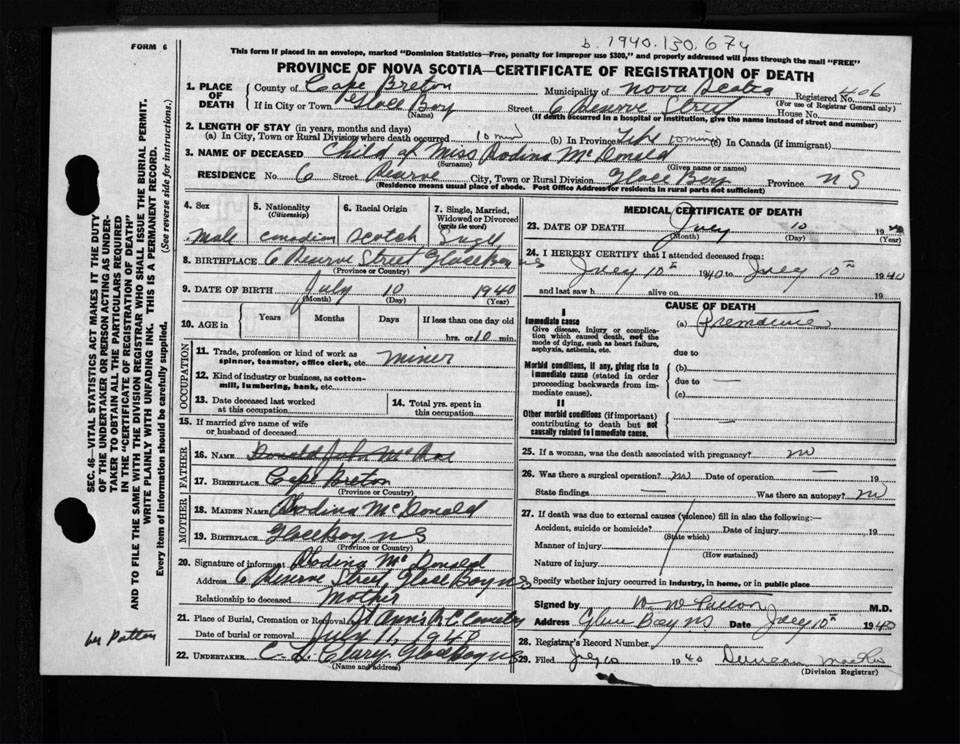 b. 1940.130.674
FORM 6
This form if placed in an envelope, marked "Dominion Statistics—Free, penalty for improper use $300," and properly addressed will pass through the mail "FREE"
PROVINCE OF NOVA SCOTIA—CERTIFICATE OF REGISTRATION OF DEATH
1. PLACE OF DEATH
County of Cape Breton
Municipality of Nova Scotia Registered No. 406
(For use of Registrar General only)
If in City or Town Glace Bay Street 6 Reserve Street House No.
(Name) (If death occurred in a hospital or institution, give the name instead of street and number)
2. LENGTH OF STAY (in years, months and days)
(a) In City, Town or Rural Division where death occurred 10 min (b) In Province (c) In Canada (if immigrant)
3. NAME OF DECEASED Child of Miss Rodina McDonald
(Surname) (Given name or names)
RESIDENCE No. 6 Street Reserve City, Town or Rural Division Glace Bay Province N S
(Residence means usual place of abode. Post Office Address for residents in rural parts not sufficient)
4. Sex
5. Nationality (Citizenship)
6. Racial Origin
7. Single, Married, Widowed or Divorced (write the word)
Male Canadian Scotch Single
8. BIRTHPLACE 6 Reserve Street Glace Bay N S
(Province or Country)
9. DATE OF BIRTH July 10 1940
(Month) (Day) (Year)
10. AGE in
Years Months Days If less than one day old
hrs. or 10 min.
OCCUPATION
11. Trade, profession or kind of work as spinner, teamster, office clerk, etc. Miner
12. Kind of industry or business, as cotton-mill, lumbering, bank, etc.
13. Date deceased last worked at this occupation
14. Total yrs. spent in this occupation
15. If married give name of wife or husband of deceased
FATHER
16. NAME Donald John
17. BIRTHPLACE Cape Breton
(Province or Country)
MOTHER
18. MAIDEN NAME Rodina McDonald
19. BIRTHPLACE Glace Bay N S
(Province or Country)
20. Signature of informant Rodina McDonald
Address 6 Reserve Street Glace Bay N S
Relationship to deceased Mother
21. Place of Burial, Cremation or Removal St Ann's R.C. Cemetery
Date of burial or removal July 11, 1940
22. UNDERTAKER Glace Bay N S
(Name and address)
MEDICAL CERTIFICATE OF DEATH
23. DATE OF DEATH July 10 1940
(Month) (Day) (Year)
24. I HEREBY CERTIFY that I attended deceased from:
July 10th 1940 to July 10th 1940
and last saw h alive on 19
CAUSE OF DEATH
I
Immediate cause
Give disease, injury or complication which caused death, not the mode of dying, such as heart failure, asphyxia, asthenia, etc.
(a) Premature
due to
Morbid conditions, if any, giving rise to immediate cause (stated in order proceeding backwards from immediate cause).
(b)
due to —
(c)
II
Other morbid conditions (if important) contributing to death but not causally related to immediate cause. —
25. If a woman, was the death associated with pregnancy? no
26. Was there a surgical operation? no Date of operation — 19
State findings — Was there an autopsy? no
27. If death was due to external causes (violence) fill in also the following:—
Accident, suicide or homicide? Date of injury 19
(State which)
Manner of injury
(How sustained)
Nature of injury
Specify whether injury occurred in industry, in home, or in public place
Signed by M.D.
Address Glace Bay N S Date July 10th 1940
28. Registrar's Record Number
29. Filed July 10 1940 Duncan
(Division Registrar)
SEC. 46—VITAL STATISTICS ACT MAKES IT THE DUTY OF THE UNDERTAKER OR PERSON ACTING AS UNDERTAKER TO OBTAIN ALL THE PARTICULARS REQUIRED IN THE "CERTIFICATE OF REGISTRATION OF DEATH" AND TO FILE THE SAME WITH THE DIVISION REGISTRAR WHO SHALL ISSUE THE BURIAL PERMIT.
WRITE PLAINLY WITH UNFADING INK. THIS IS A PERMANENT RECORD.
Every item of information should be carefully supplied. (See reverse side for instructions.)